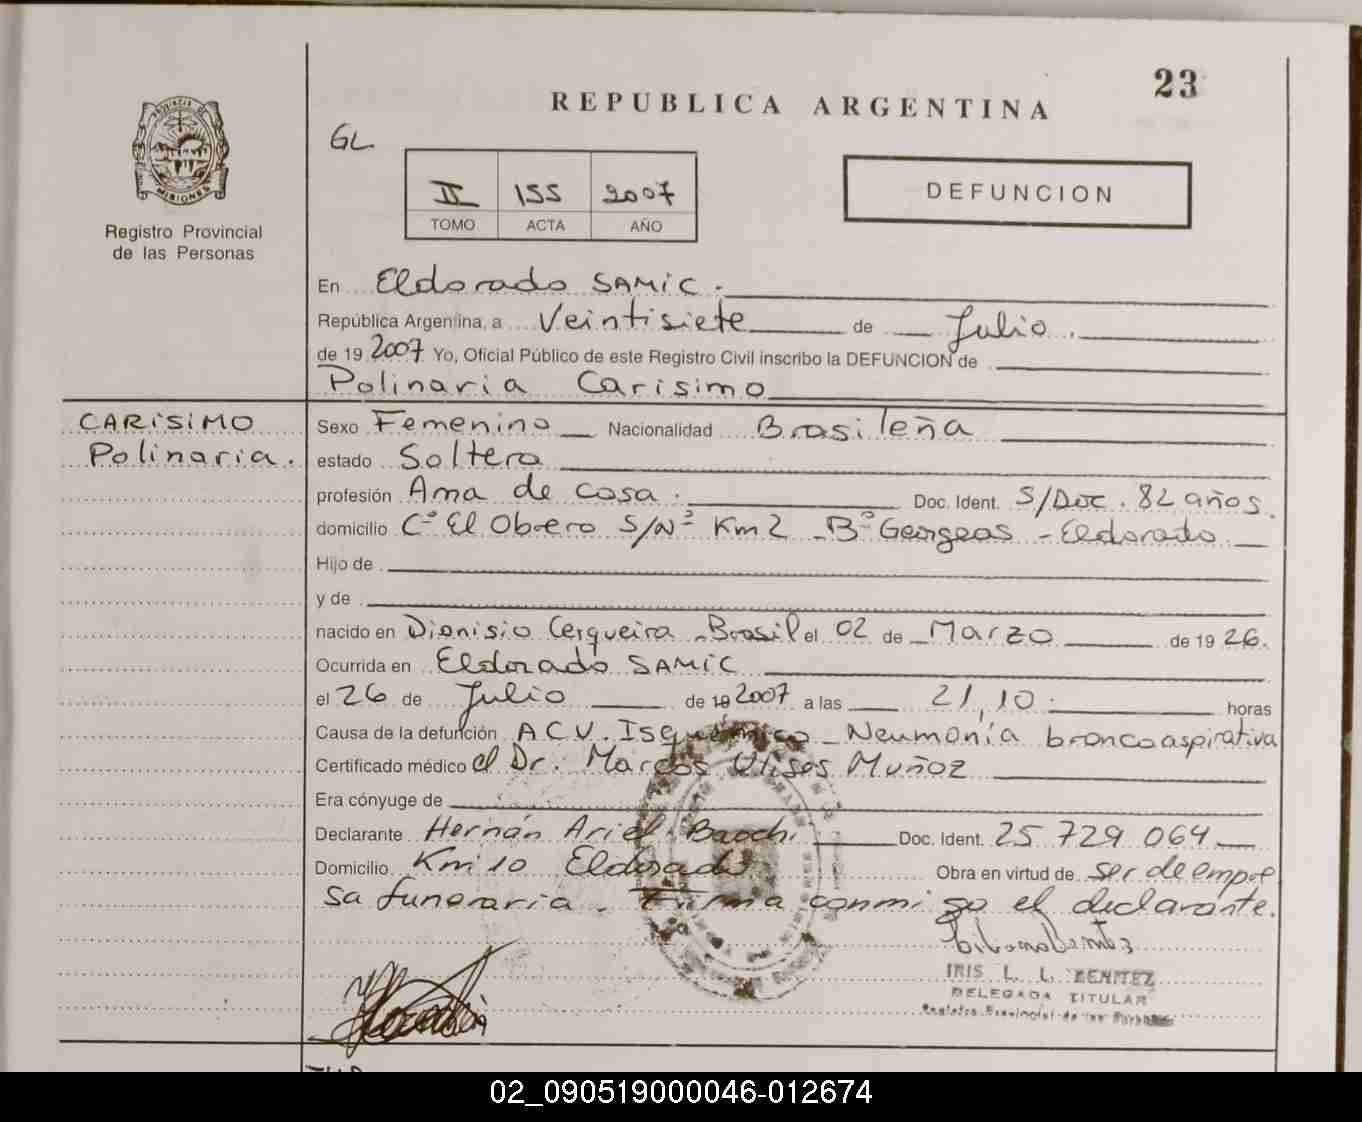 23
REPUBLICA ARGENTINA
GL
PROVINCIA DE
MISIONES
Registro Provincial
de las Personas
II 155 2007
TOMO ACTA AÑO
DEFUNCION
En Eldorado SAMIC.
República Argentina, a Veintisiete de Julio.
de 19 2007 Yo, Oficial Público de este Registro Civil inscribo la DEFUNCION de
Polinaria Carisimo
CARISIMO
Polinaria.
Sexo Femenino Nacionalidad Brasileña
estado Soltera
profesión Ama de casa. Doc. Ident. S/Doc. 82 años.
domicilio Cº El Obrero S/Nº Km 2 - Bº Georgeas - Eldorado
Hijo de
y de
nacido en Dionisio Cerqueira - Brasil el 02 de Marzo de 19 26.
Ocurrida en Eldorado SAMIC
el 26 de Julio de 19 2007 a las 21,10 horas
Causa de la defunción ACV. Isquémico - Neumonía broncoaspirativa
Certificado médico el Dr. Marcos Ulises Muñoz
Era cónyuge de
Declarante Hernán Ariel Doc. Ident. 25 729 064
Domicilio Km 10 Eldorado Obra en virtud de ser de empre
sa funeraria. Firma conmigo el declarante.
IRIS L. L. BENITEZ
DELEGADA TITULAR
Registro Provincial de las Personas
02_090519000046-012674